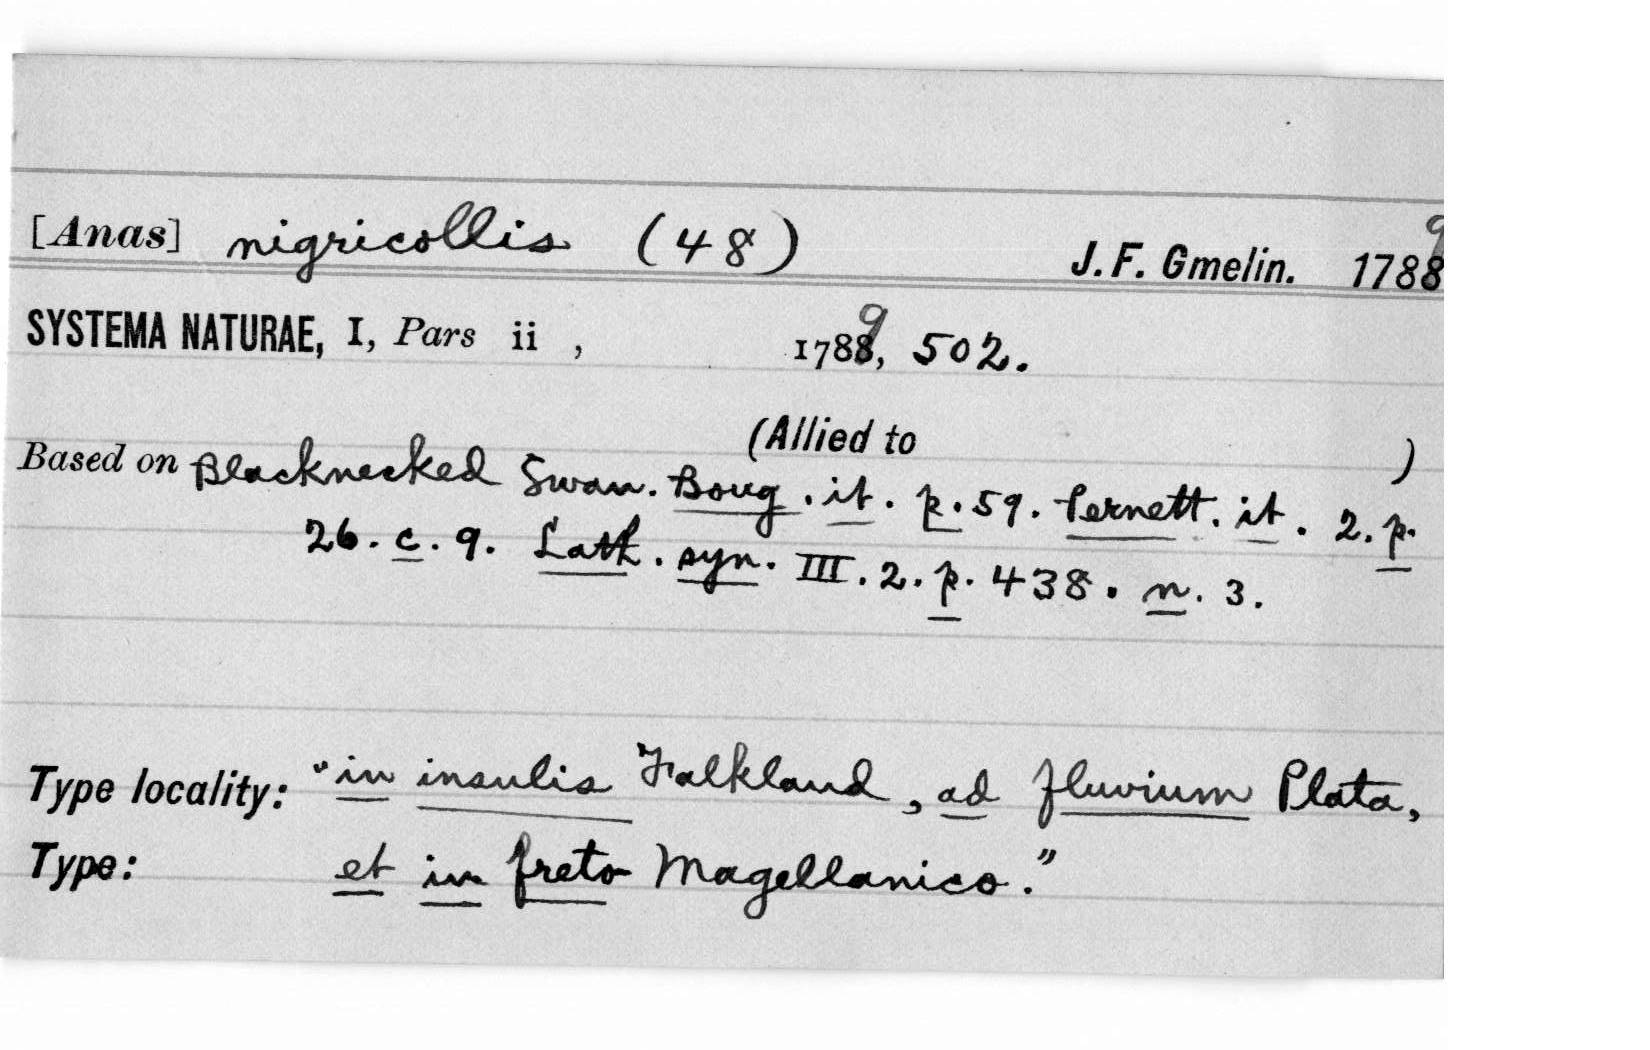 [Anas] nigricollis (48) J. F. Gmelin. 1789
SYSTEMA NATURAE, I, Pars ii , 1789, 502.
(Allied to )
Based on Blacknecked Swan. Boug. it. p. 59. Pernett. it. 2. p.
26. c. 9. Lath. syn. III. 2. p. 438. n. 3.
Type locality: "in insulis Falkland, ad fluvium Plata,
Type: et in freto Magellanico."